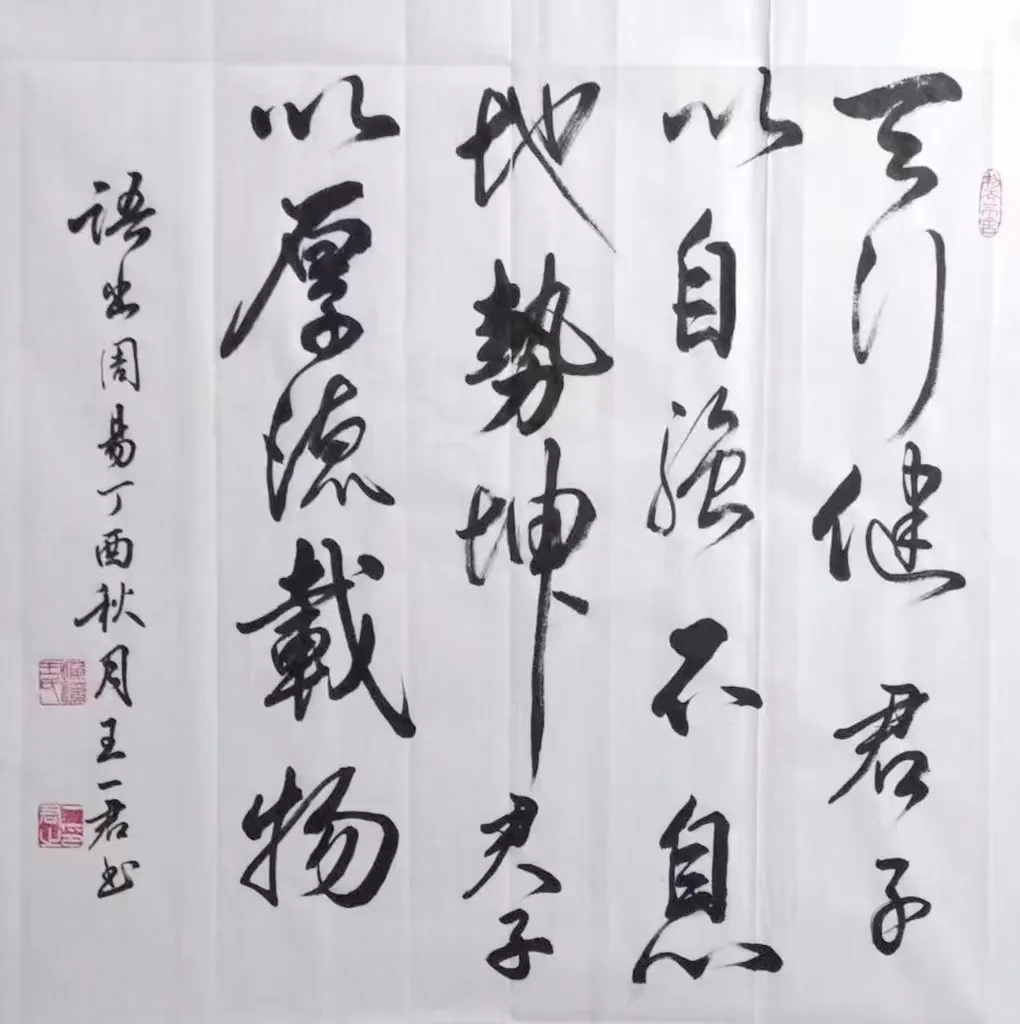 天行健君子
以自强不息
地勢坤君子
以厚德載物
語出周易丁酉秋月王一君书